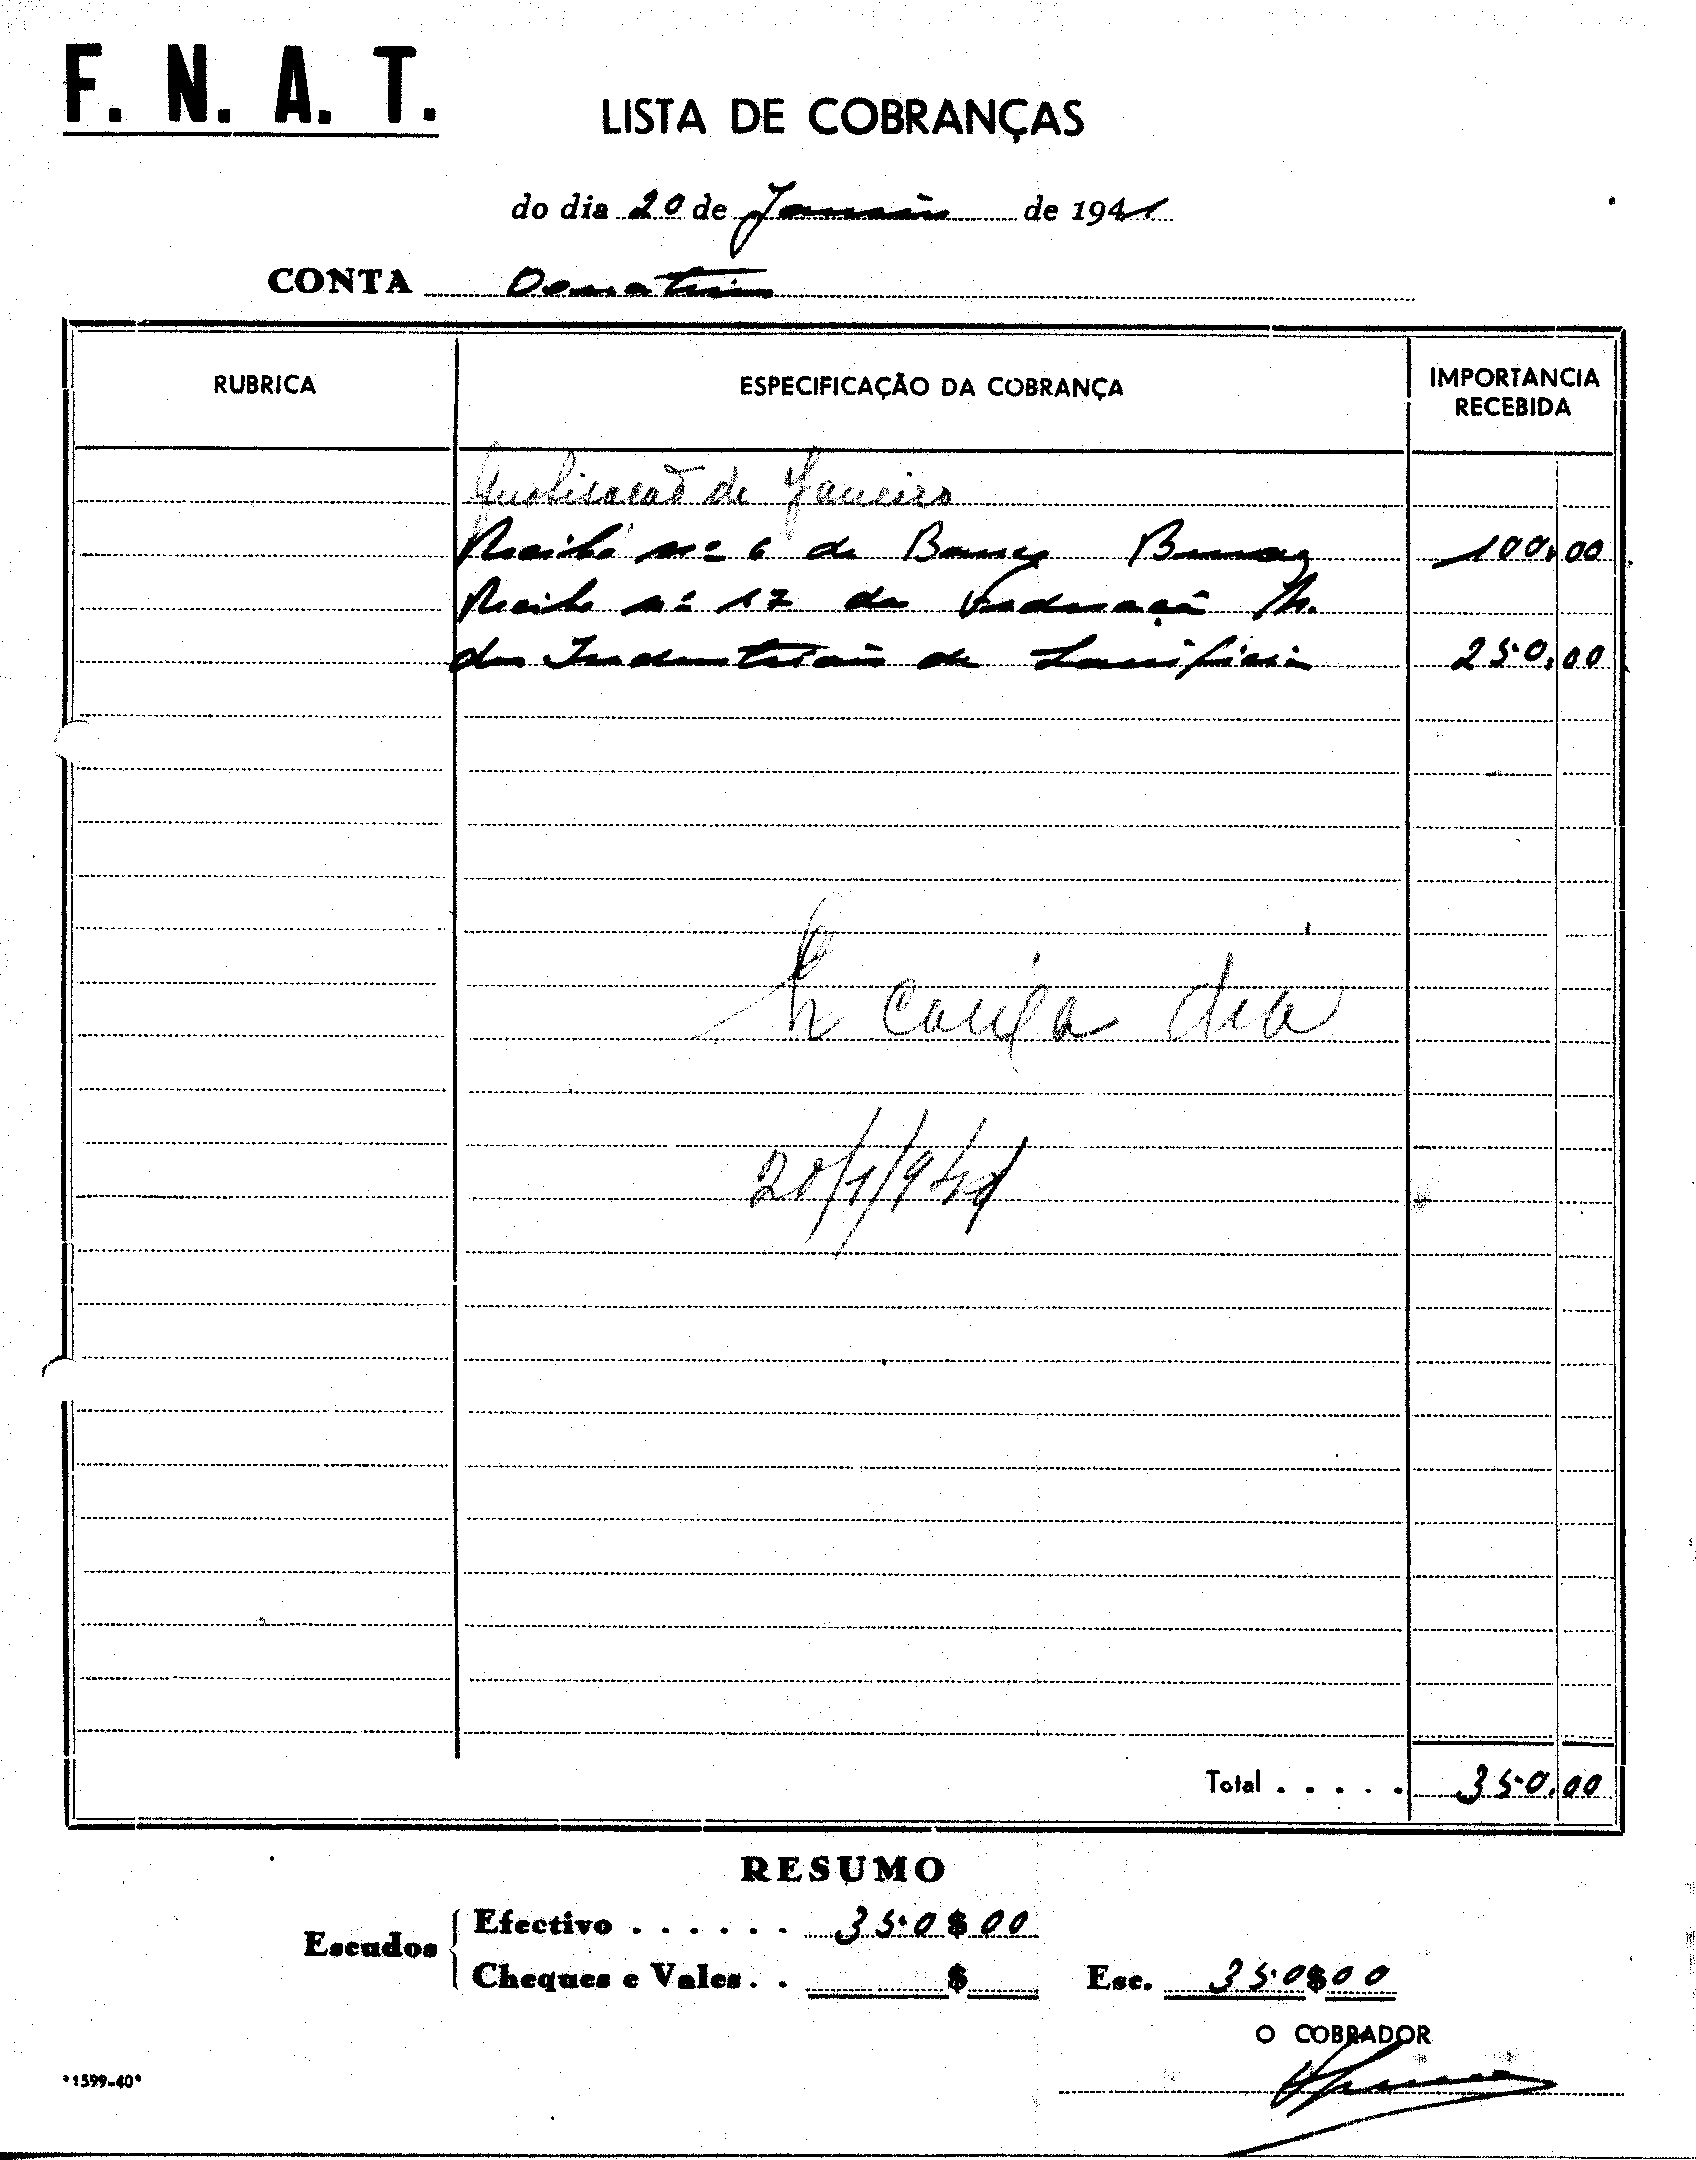 F. N. A. T.
LISTA DE COBRANÇAS
do dia 20 de Janeiro de 1941
CONTA Donativos
RUBRICA
ESPECIFICAÇÃO DA COBRANÇA
IMPORTANCIA RECEBIDA
de Janeiro
Recibo nº 6 do Banco Burnay 100,00
Recibo nº 17 da Federação N.
dos Industriais de Lanifícios 250,00
caixa dia
20/1/941
Total . . . . . 350,00
RESUMO
Escudos
Efectivo . . . . . . 350$00
Cheques e Vales. . $
Esc. 350$00
O COBRADOR
*1599-40*